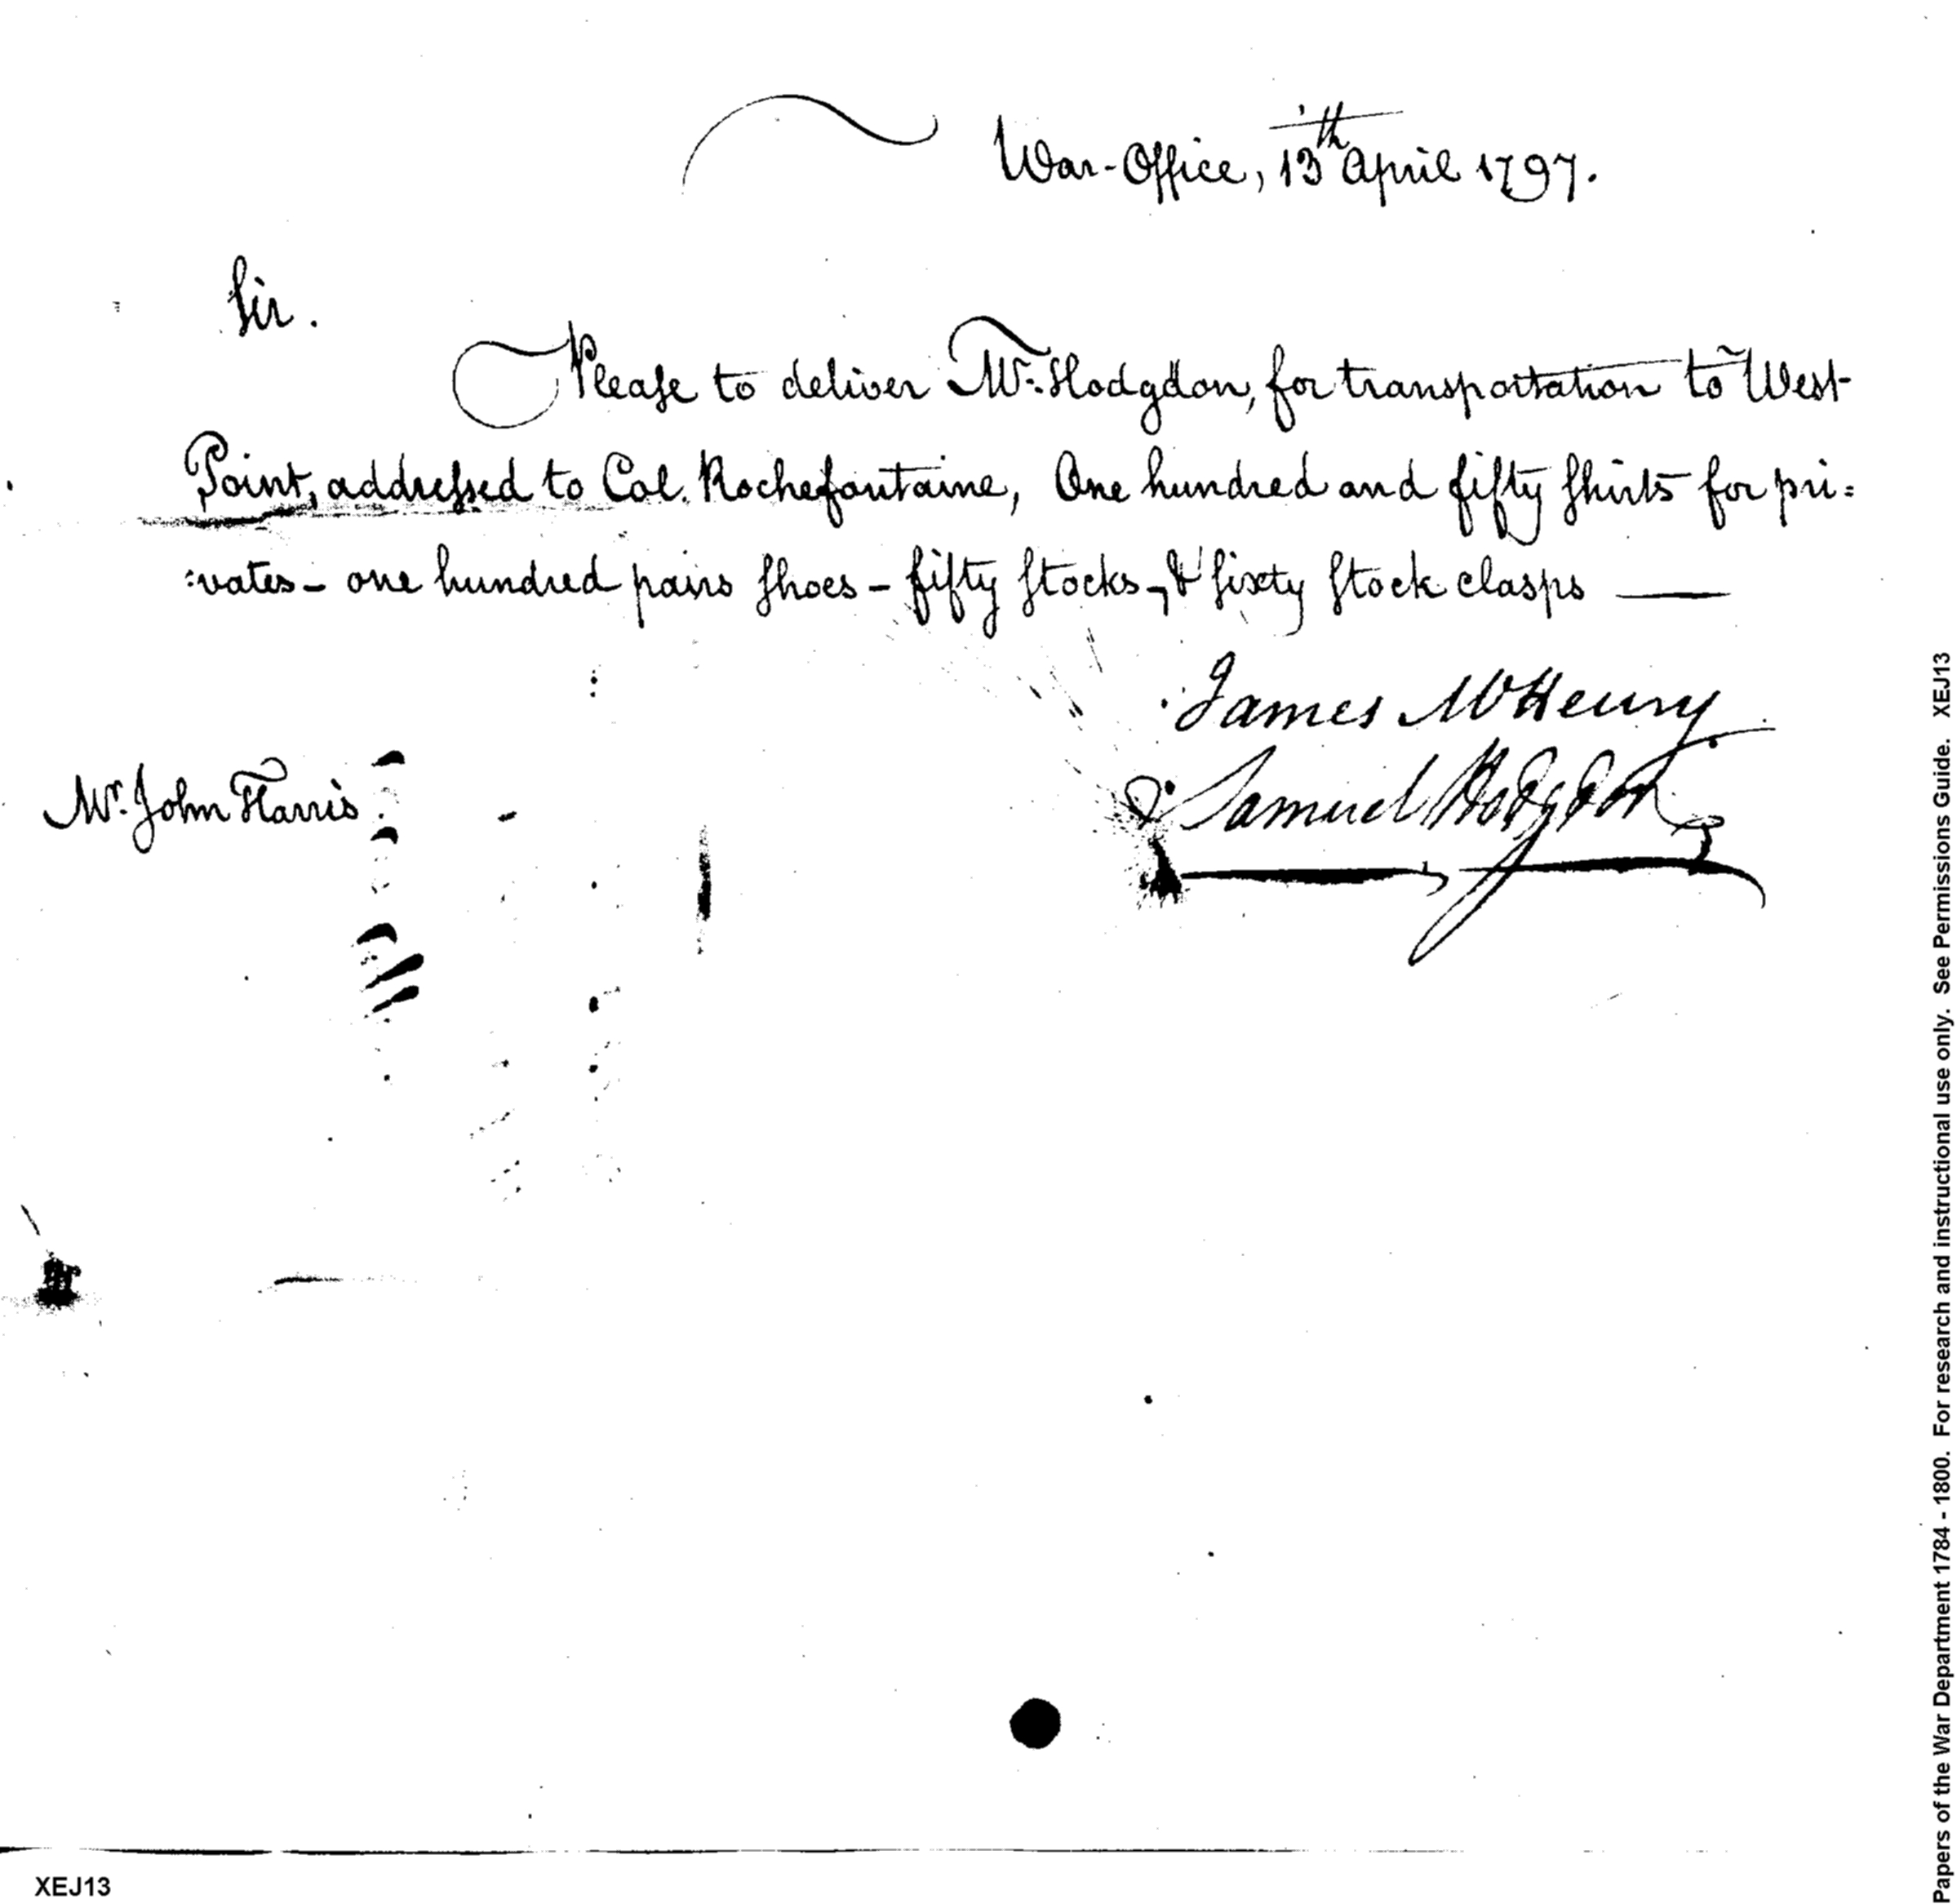 War-Office, 13th April 1797.
Sir.
Please to deliver Mr. Hodgdon, for transportation to West
Point, addressed to Col. Rochefontaine, One hundred and fifty shirts for pri=
=vates - one hundred pairs shoes - fifty stocks -, & sixty stock clasps
James McHenry
Mr. John Harris
Samuel Hodgdon
Papers of the War Department 1784 - 1800. For research and instructional use only. See Permissions Guide. XEJ13
XEJ13